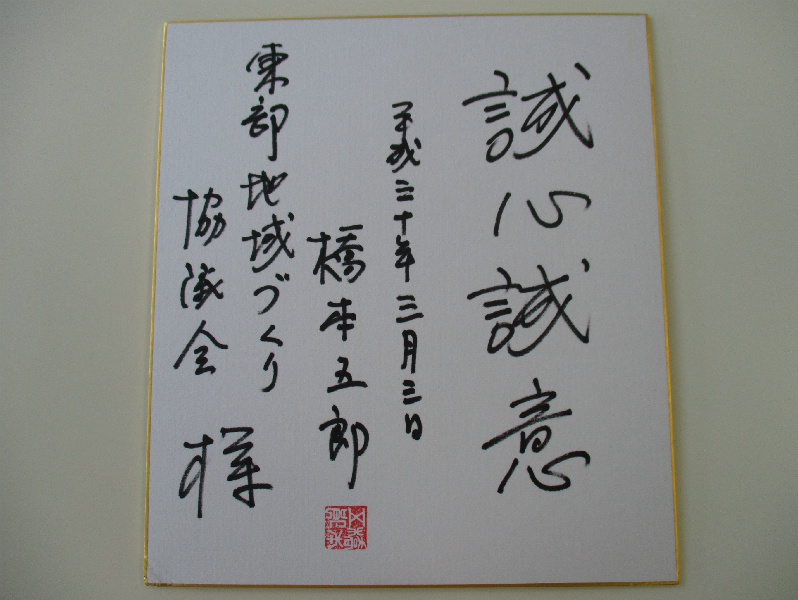 誠心誠意
平成三十年三月三日
橋本五郎
東部地域づくり
協議会 様